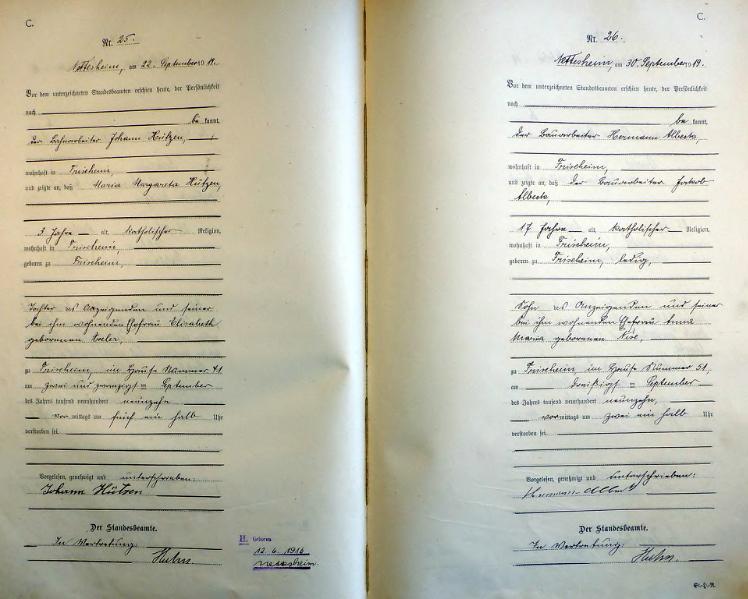 C.
Nr. 25.
Nettesheim, am 22. September 1919.
Vor dem unterzeichneten Standesbeamten erschien heute, der Persönlichkeit
nach
be kannt,
der Bahnarbeiter Johann Hützen,
wohnhaft in Frixheim,
und zeigte an, daß Maria Margareta Hützen,
3 Jahre alt, katholischer Religion,
wohnhaft in Frixheim,
geboren zu Frixheim,
Tochter des Anzeigenden und seiner
bei ihm wohnenden Ehefrau Elisabeth
geborenen
zu Frixheim, im Hause Nummer 41
am zwei und zwanzigsten September
des Jahres tausend neunhundert neunzehn
vormittags um ein halb Uhr
verstorben sei.
Vorgelesen, genehmigt und unterschrieben:
Johann Hützen
Der Standesbeamte.
In Vertretung:
H. geboren
12. 6. 1916
Nettesheim.
C.
Nr. 26.
Nettesheim, am 30. September 1919.
Vor dem unterzeichneten Standesbeamten erschien heute, der Persönlichkeit
nach
be kannt,
der Bauarbeiter Hermann Alberts,
wohnhaft in Frixheim,
und zeigte an, daß der Bauarbeiter Jakob
Alberts,
17 Jahre alt, katholischer Religion,
wohnhaft in Frixheim,
geboren zu Frixheim, ledig,
Sohn des Anzeigenden und seiner
bei ihm wohnenden Ehefrau Anna
Maria geborenen
zu Frixheim, im Hause Nummer 51,
am dreißigsten September
des Jahres tausend neunhundert neunzehn,
vormittags um zwei ein halb Uhr
verstorben sei.
Vorgelesen, genehmigt und unterschrieben:
Hermann Alberts
Der Standesbeamte.
In Vertretung: